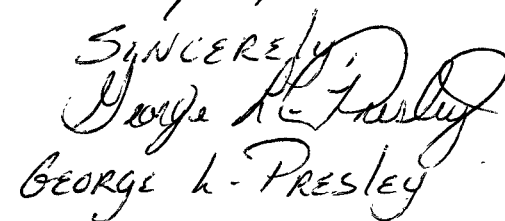 Sincerely,
George L. Presley
George L. Presley